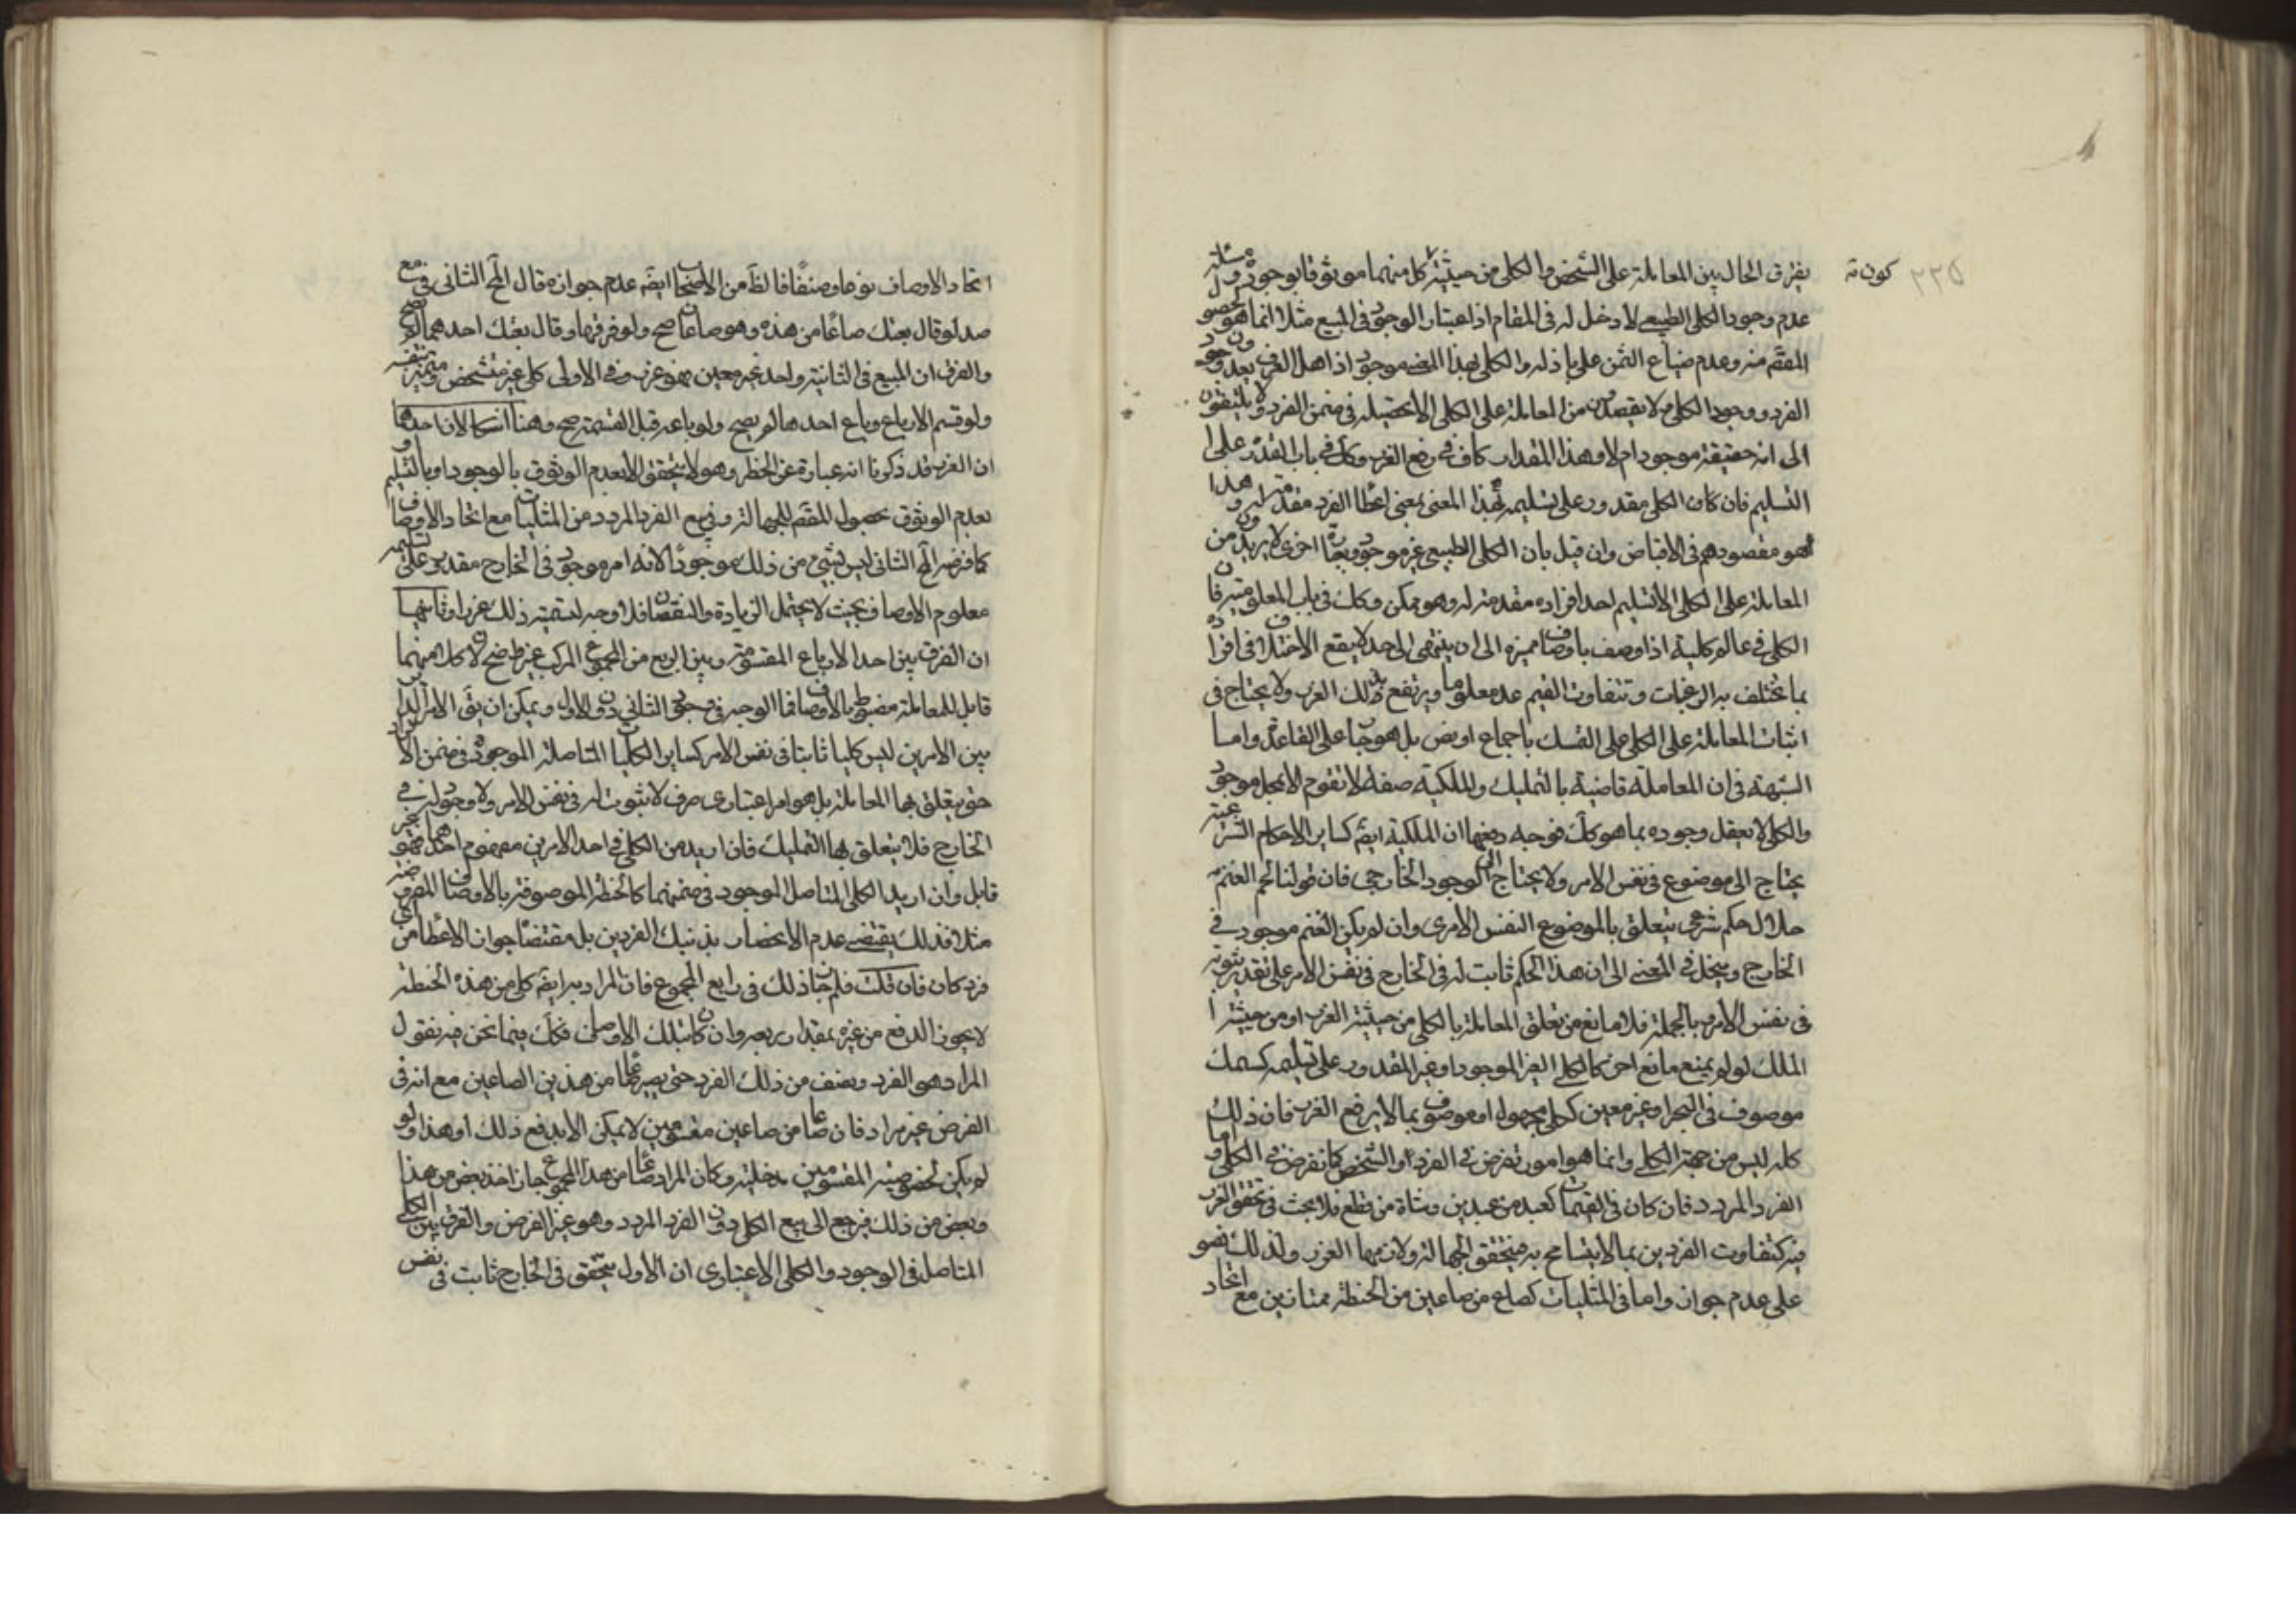 ٢٣٥
كون ته
يفترق الحال بين المعاملة على الشخص والكلى من حيثية كل منهما موثوقا بوجوده
عدم وجود الكلى الطبيعى لا دخل له فى المقام اذ اعتبار الوجود فى المبيع مثلا انما هو
المقصَّم منه وعدم ضياع الثمن على باذله والكلى بهذا المعنى موجود اذ اهل العرف
الفرد ووجود الكلى ولا يقصدون من المعاملة على الكلى الا تحصيله فى ضمن الفرد ولا يلتفتون
الى انه حقيقة موجود ام لا وهذا المقدار كاف فى رفع الغرر وكك فى باب القدرة على
التسليم فان كان الكلى مقدور على تسليمه بهذا المعنى بمعنى اعطا الفرد مقدمة له وهذا
هو مقصودهم فى الاقباض وان قيل بان الكلى الطبيعى غير موجود وبعبارة اخرى لا يريدون من
المعاملة على الكلى الا تسليم احد افراده مقدمة له وهو ممكن وكك فى باب المعلومية فان
الكلى فى عالم كلية اذا وصف باوصاف مميزه الى ان ينتهى الى حد لا يقع الاختلاف فى افراده
بما تختلف به الرغبات وتتفاوت القيم عد معلوما ويرتفع بذلك الغرر ولا يحتاج فى
اثبات المعاملة على الكلى على التمسك باجماع او نص بل هو جار على القاعدة واما
الشبهة فى ان المعاملة قاضية بالتمليك والملكية صفة لا تقوم الا بمحل موجود
والكلى لا يعقل وجوده بما هو كك فوجه دفعها ان الملكية ايضَ كساير الاحكام الشرعية
يحتاج الى موضوع فى نفس الامر ولا يحتاج الى الوجود الخارجى فان قولنا لحم الغنم
حلال حكم شرعى يتعلق بالموضوع النفس الامرى وان لم يكن الغنم موجود فى
الخارج وينحل فى المعنى الى ان هذا الحكم ثابت له فى الخارج فى نفس الامر على تقدير ثبوته
فى نفس الامر وبالجملة فلا مانع من تعلق المعاملة بالكلى من حيثية الغرر او من حيثية
الملك لو لم يمنع مانع اخر كالكلى الغير الموجود او غير المقدور على تسليمه كسمك
موصوف فى البحر او غير معين ككلى مجهول او موصوف بما لا يرفع الغرر فان ذلك
كله ليس من جهة الكلى وانما هو امور تفرض فى الفرد او الشخص كما تفرض فى الكلى واما
الفرد المردد فان كان فى القيميات كعبد من عبدين وشاة من قطيع فلا بحث فى تحقق الغرر
فيه كتفاوت الفردين بما لا يتسامح به فيتحقق الجهالة ولازمها الغرر ولذلك نصو
على عدم جوازه واما فى المثليات كصاع من صاعين من الحنطة ممتازين مع اتحاد
اتحاد الاوصاف نوعا وصنفا فالظَ من الاصحاب ايضَ عدم جوازه قال المح الثانى فى مع
صد لو قال بعتك صاعا من هذه وهو صاعان صح ولو فرقها وقال بعتك احدهما لم يصح
والفرق ان المبيع فى الثانية واحد غير معين فهو غرر وفى الاولى كلى غير متشخص ومتميز بنفسه
ولو قسم الارباع وباع احدها لم يصح ولو باعه قبل القسمة صح وهنا اشكالان احدهما
ان الغرر قد ذكرنا انه عبارة عن الخطر وهو لا يتحقق الا بعدم الوثوق بالوجود او بالتسليم او
بعدم الوثوق بحصول المقصَّم للجهالة وفى بيع الفرد المردد من المثليات مع اتحاد الاوصاف
كما فرضه المح الثانى ليس شىء من ذلك موجودا لانه امر موجود فى الخارج مقدور على تسليمه
معلوم الاوصاف بحيث لا يحتمل الزيادة والنقصان فلا وجه لتسمية ذلك غررا وثانيهما
ان الفرق بين احد الارباع المقسومة وبين الربع من المجموع المركب غير واضح لان كلا منهما
قابل للمعاملة مضبوط بالاوصاف فما الوجه فى وجود الثانى دون الاول ويمكن ان يقَ الامر
بين الامرين ليس كليا ثابتا فى نفس الامر كساير الكليات المتاصلة الموجودة فى ضمن الافراد
حتى يتعلق بها المعاملة بل هو امر اعتبارى صرف لا ثبوت له فى نفس الامر ولا وجود له فى
الخارج فلا يتعلق بها التمليك فان اريد من الكلى فى احد الامرين مفهوم احدهما فهو غير
قابل وان اريد الكلى المتاصل الموجود فى ضمنهما كالحنطة الموصوفة بالاوصاف المفروضه
مثلا فذلك يقتضى عدم الانحصار بذينك الفردين بل مقتضاه جواز الاعطا من اى
فرد كان فان قلت فلم جاز ذلك فى رابع المجموع فان المراد به ايضَ كلى من هذه الحنطة
لا يجوز الدفع من غيره بمقدار ربعه وان كان بتلك الاوصاف فكك فيما نحن فيه نقول
المراد هو الفرد ونصف من ذلك الفرد حتى يصير صاعا من هذين الصاعين مع انه فى
الفرض غير مراد فان صاعا من صاعين مقسومين لا يمكن الا بدفع ذلك او هذا ولو
لم يكن لخصوصية المقسومين مدخلية وكان المراد صاعا من هذا المجموع جاز اخذ بعض من هذا
وبعض من ذلك فيرجع الى بيع الكلى دون الفرد المردد وهو غير الفرض والفرق بين الكلى
المتاصل فى الوجود والكلى الاعتبارى ان الاول متحقق فى الخارج ثابت فى نفس